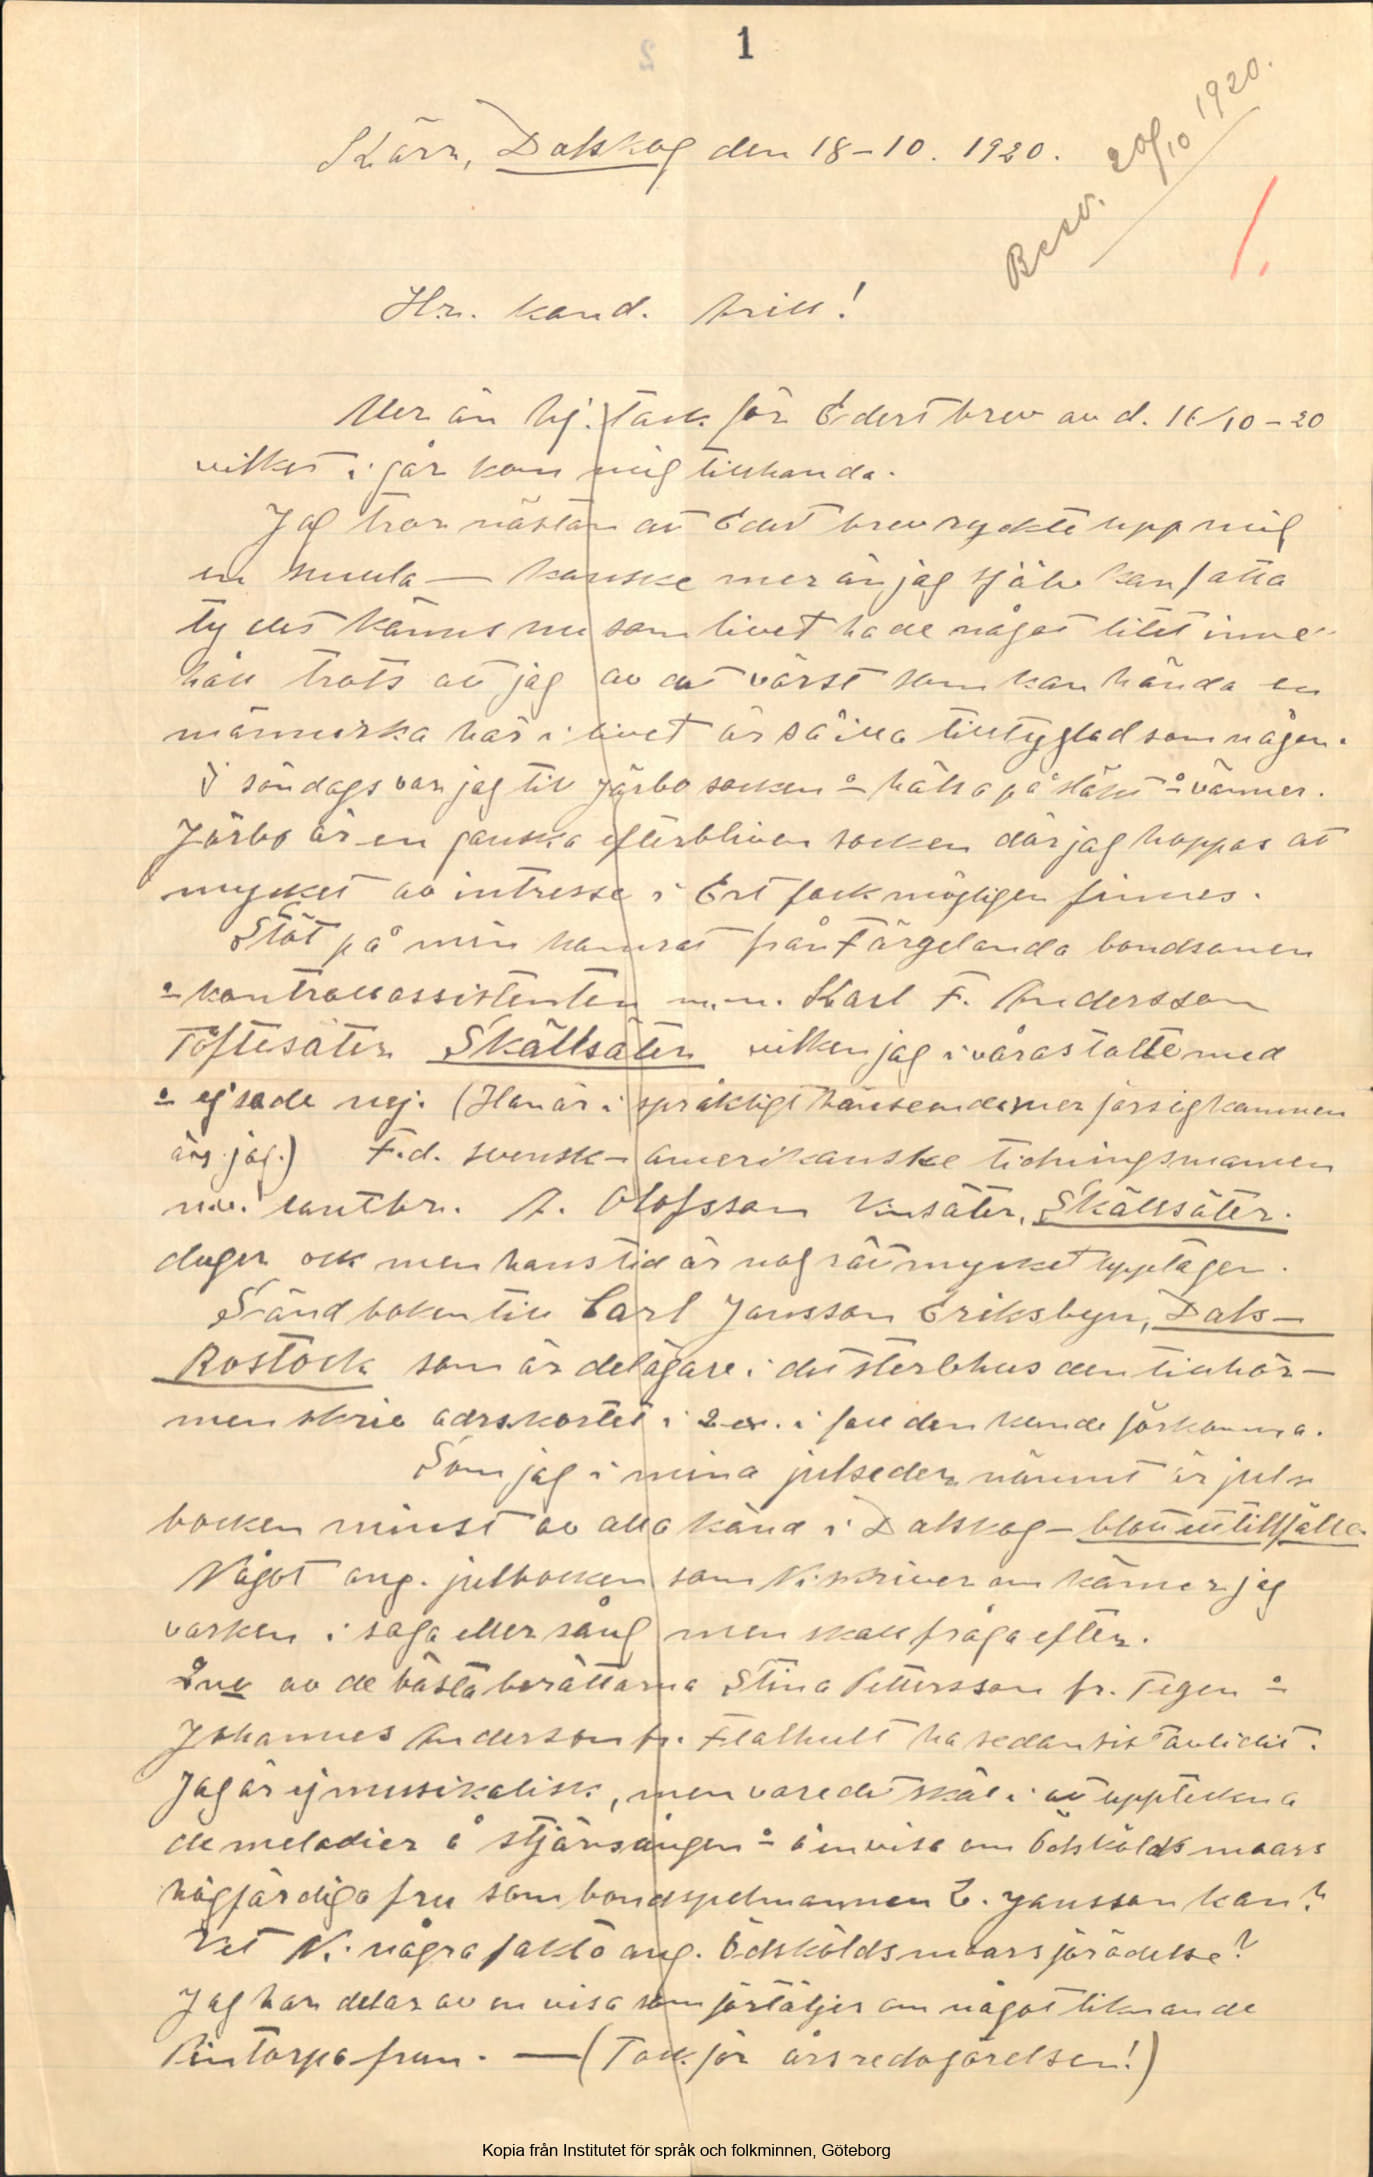 1
Kärr, Dalskog den 18-10. 1920.
Besv. 20/10 1920.
1.
Hr. kand. Arill!
Mer än hj. Tack för Edert brev av d. 16/10-20
vilket i går kom mig tillhanda.
Jag tror nästan att Edert brev ryckte upp mig
en smula — kanske mer än jag själv kan fatta
ty det kännes nu som livet hade något litet inne-
håll trots att jag av det värst som kan hända en
människa här i livet är så illa tilltyglad som någon.
I söndags var jag till Järbo socken o hälsa på släkt o vänner.
Järbo är en ganska efterbliven socken där jag hoppas att
mycket av intresse i Ert fack möjligen finnes.
Stöt på min kamrat från Färgelanda bondsonen
o kontrollassistenten m.m. Karl F. Andersson
Töftesäter Skällsäter vilken jag i våras talte med
o ej sade nej. (Han är i språkligt hänseende mer försigkommen
än jag.) F.d. svensk-amerikanske tidningsmannen
nuv. lantbr. A. Olofsson Vinsäter, Skällsäter.
duger ock men hans tid är nog rätt mycket upptagen.
Sänd boken till Carl Jansson Eriksbyn, Dals-
Rostock som är delägare i det sterbhus den tillhör —
men skriv adrskortet i 2 ex. i fall den kunde förkomma.
Som jag i mina julseder nämnt är jul-
bocken minst av alla känd i Dalskog — blott ett tillfälle.
Något ang. julbocken som Ni skriver om känner jag
varken i saga eller sång men skall fråga efter.
Två av de bästa berättarna Stina Pettersson fr. Tegen o
Johannes Andersson fr. Flathult ha sedan sist avlidit.
Jag är ej musikalisk, men vore det skäl i att uppteckna
de melodier å stjärnsången o å en visa om Ödskölds moars
högfärdiga fru som bondspelmannen E. Jansson kan?
Vet Ni några fakta ang. Ödskölds moars förädelse?
Jag har delar av en visa som förtäljer om något liknande
Pintorpafrun. — (Tack för årsredogörelsen!)
Kopia från Institutet för språk och folkminnen, Göteborg